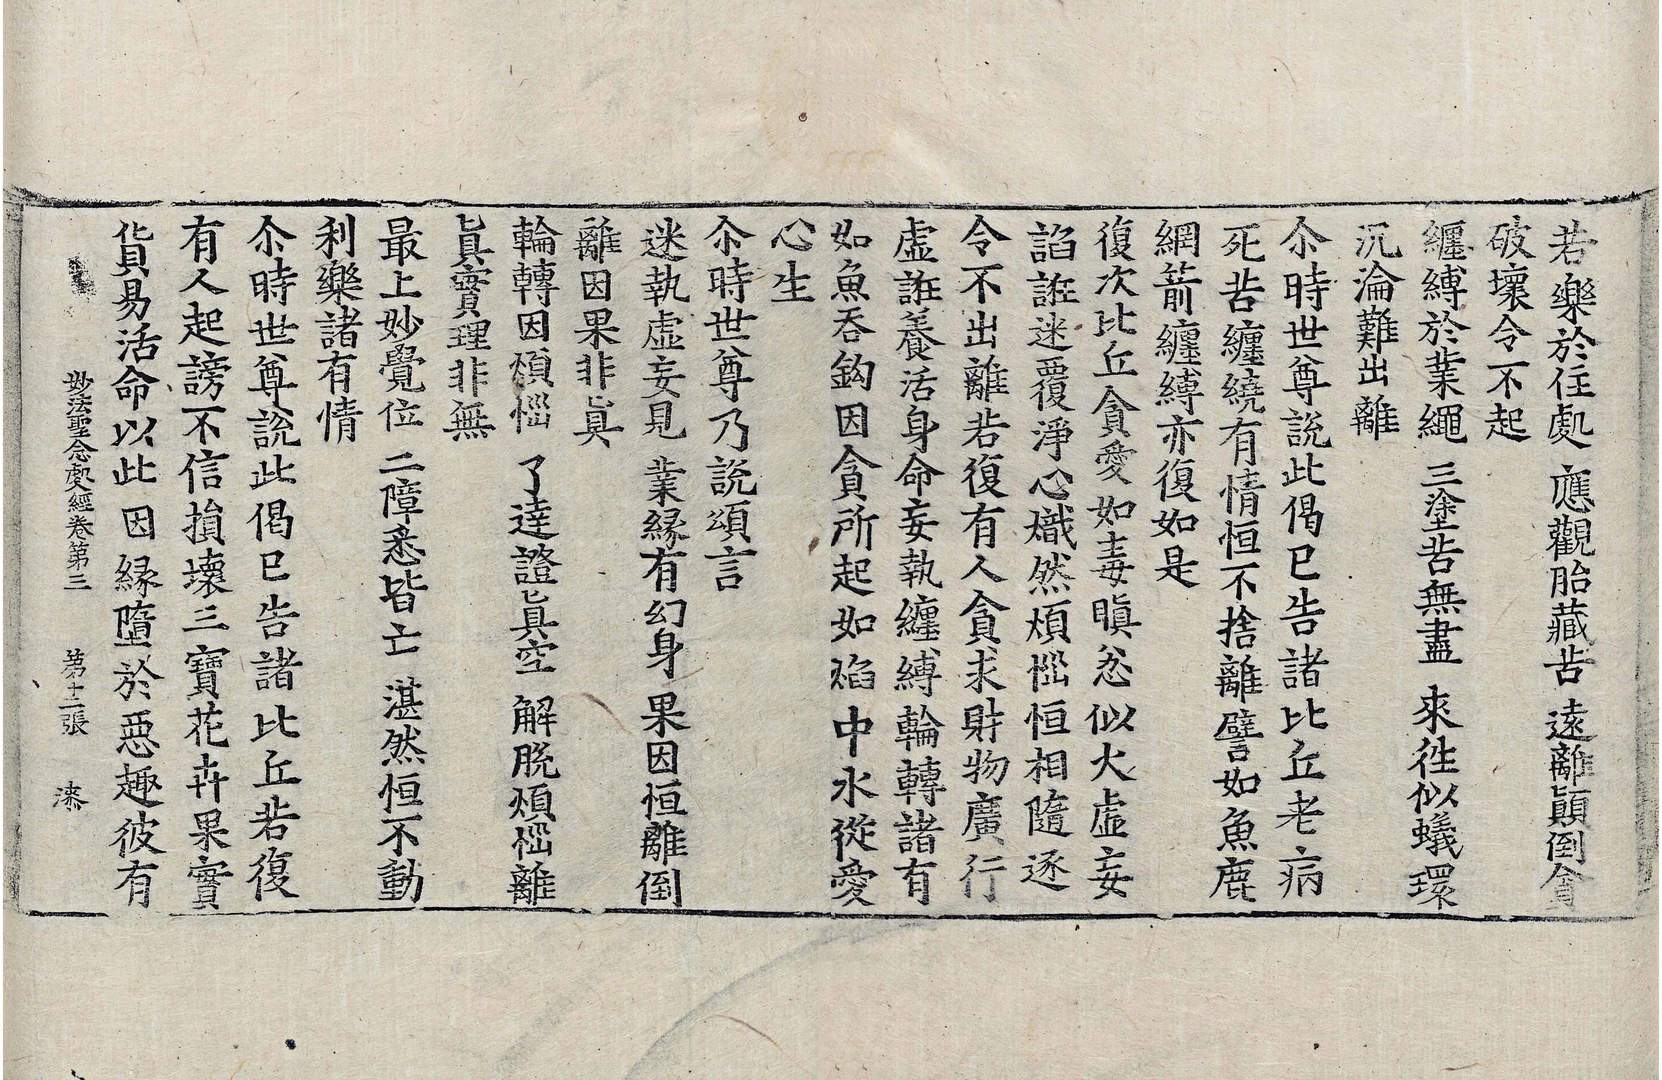 若樂於住處　應觀胎藏苦　遠離顛倒貪
破壞令不起
纏縛於業繩　三塗苦無盡　來往似蟻環
沉淪難出離
尒時世尊說此偈已告諸比丘老病
死苦纏繞有情恒不捨離譬如魚鹿
網箭纏縛亦復如是
復次比丘貪愛如毒瞋忿似火虛妄
諂誑迷覆淨心熾然煩惱恒相隨逐
令不出離若復有人貪求財物廣行
虛誑養活身命妄執纏縛輪轉諸有
如魚吞鈎因貪所起如焰中水從愛
心生
尒時世尊乃說頌言
迷執虛妄見　業緣有幻身　果因恒離倒
離因果非眞
輪轉因煩惱　了達證眞空　解脫煩惱離
眞實理非無
最上妙覺位　二障悉皆亡　湛然恒不動
利樂諸有情
尒時世尊說此偈已告諸比丘若復
有人起謗不信損壞三寶花卉果實
貨易活命以此因緣墮於惡趣彼有
妙法聖念處經卷第三　第十二張　漆